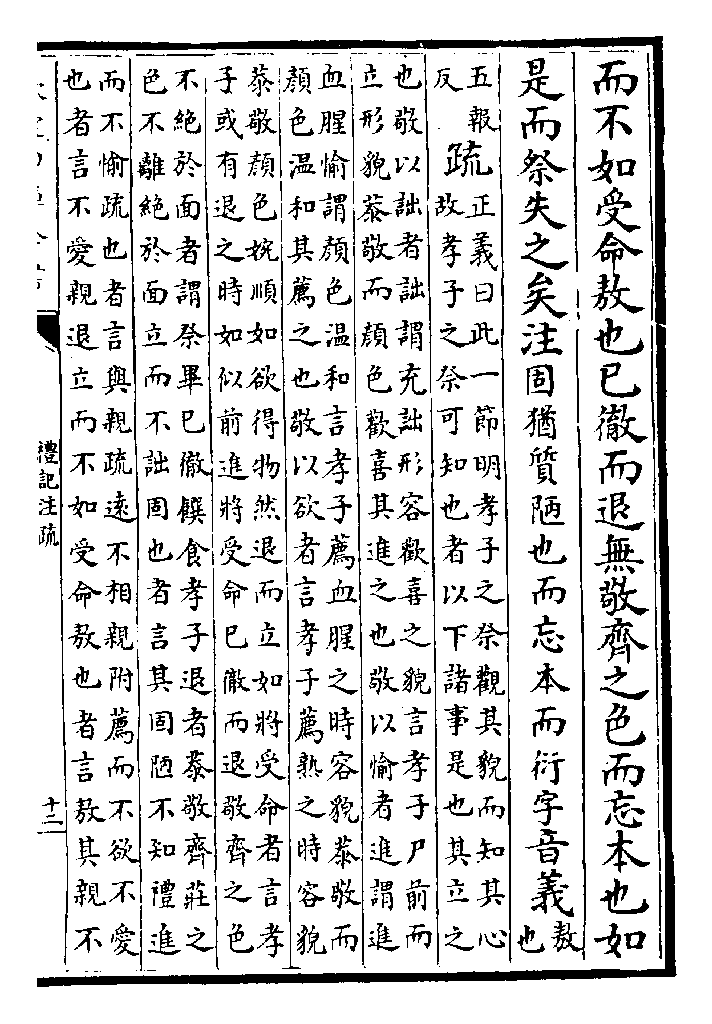 而不如受命敖也已徹而退無敬齊之色而忘本也如
是而祭失之矣注固猶質陋也而忘本而衍字音義敖
也
五報
反
疏
正義曰此一節明孝子之祭觀其貌而知其心
故孝子之祭可知也者以下諸事是也其立之
也敬以詘者詘謂充詘形容歡喜之貌言孝子尸前而
立形貌恭敬而顔色歡喜其進之也敬以愉者進謂進
血腥愉謂顔色温和言孝子薦血腥之時容貌恭敬而
顔色温和其薦之也敬以欲者言孝子薦熟之時容貌
恭敬顔色婉順如欲得物然退而立如將受命者言孝
子或有退之時如似前進將受命已徹而退敬齊之色
不絶於面者謂祭畢已徹饌食孝子退者恭敬齊莊之
色不離絶於面立而不詘固也者言其固陋不知禮進
而不愉疏也者言與親疏逺不相親附薦而不欲不愛
也者言不愛親退立而不如受命敖也者言敖其親不
禮記注疏
十二